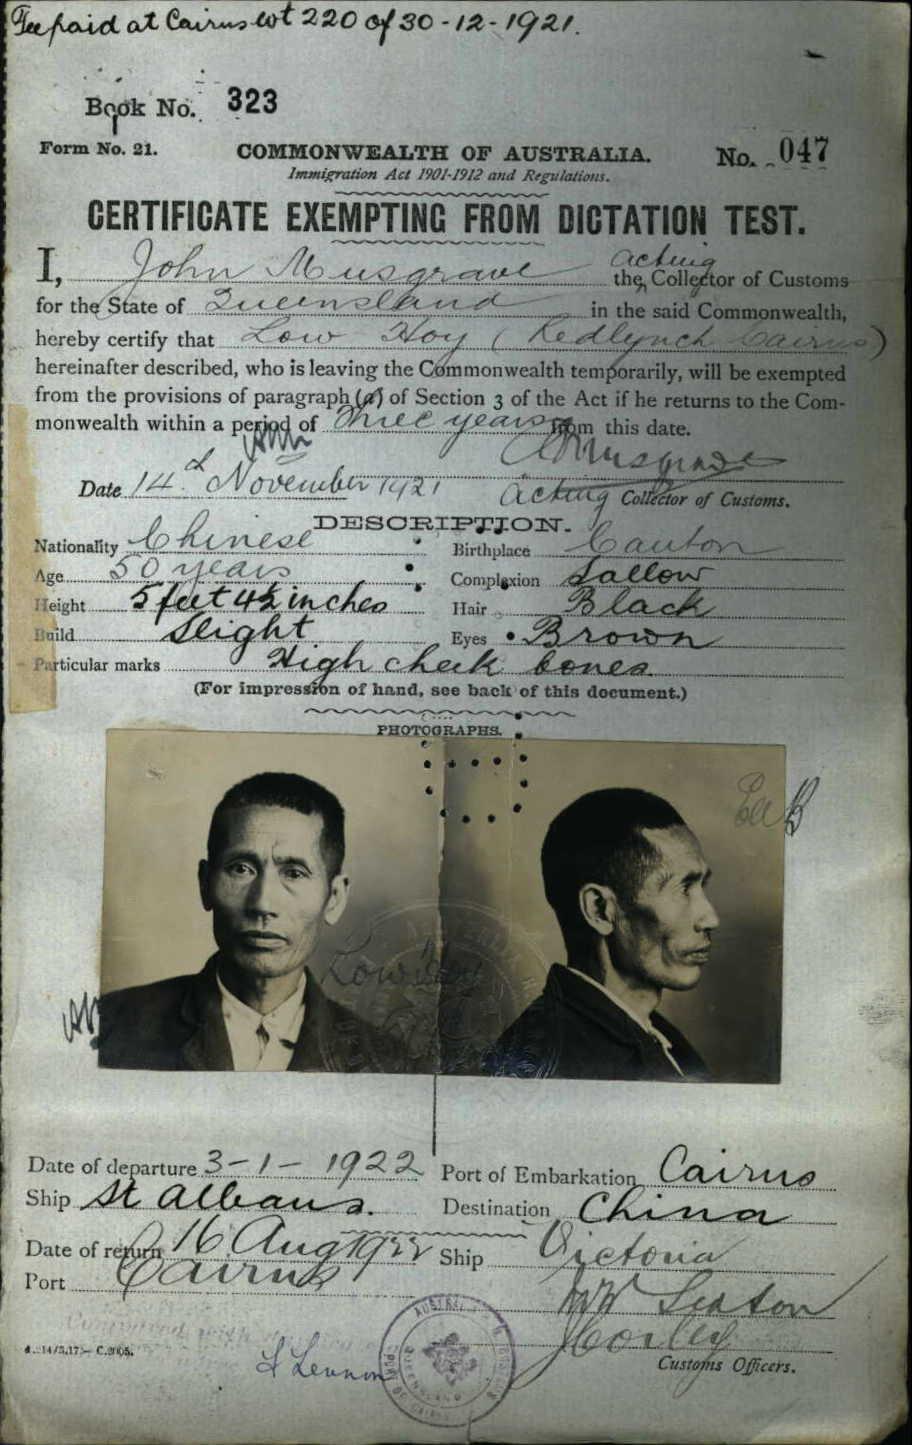 Fee paid at Cairns wt 220 of 30-12-1921.
Book No. 323
Form No. 21.
COMMONWEALTH OF AUSTRALIA.
No. 047
Immigration Act 1901-1912 and Regulations.
CERTIFICATE EXEMPTING FROM DICTATION TEST.
I, John Musgrave the acting Collector of Customs
for the State of Queensland in the said Commonwealth,
hereby certify that Low Hoy (Redlynch Cairns)
hereinafter described, who is leaving the Commonwealth temporarily, will be exempted
from the provisions of paragraph (a) of Section 3 of the Act if he returns to the Com-
monwealth within a period of Three years from this date.
Musgrave
Date 14th November 1921 Acting Collector of Customs.
DESCRIPTION.
Nationality Chinese Birthplace Canton
Age 50 years Complexion Sallow
Height 5 feet 4½ inches Hair Black
Build Slight Eyes Brown
Particular marks High cheek bones.
(For impression of hand, see back of this document.)
PHOTOGRAPHS.
Low Hoy
Date of departure 3-1-1922 Port of Embarkation Cairns
Ship St Albans. Destination China
Date of return 16 Aug 1922 Ship Victoria
Port Cairns
Customs Officers.